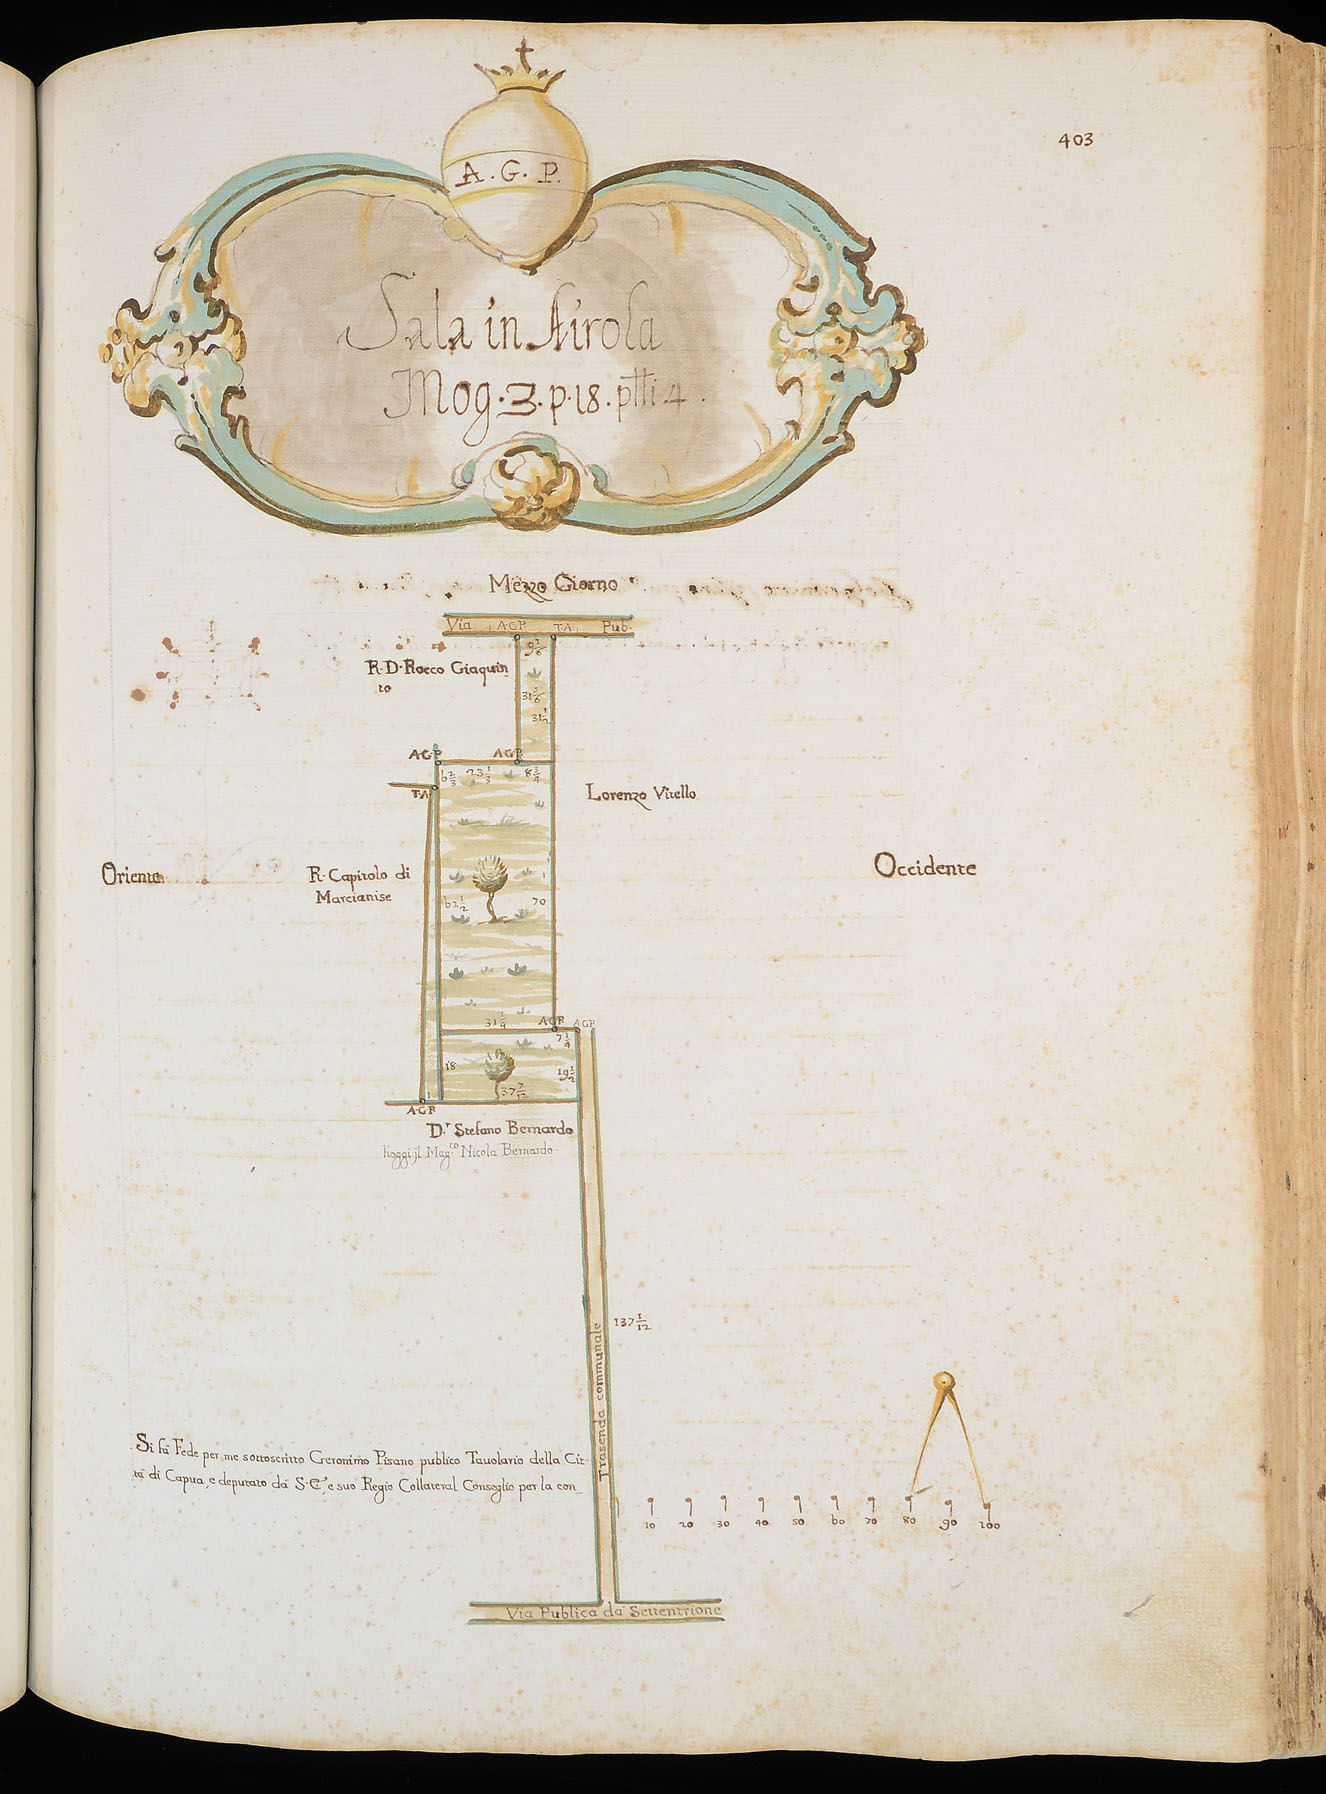 403
A. G. P.
Sala in Airola
Mog. 3. p. 18. ptti 4.
Mezzo Giorno
Via A.G.P. T.A. Pub.
9 1/6
R. D. Rocco Giaquin
to
31 1/2
A.G.P. A.G.P.
6 2/3 23 1/3 8 3/4
T.A
Lorenzo Vitello
Oriente
Occidente
R. Capitolo di
Marcianise
62 1/2 70
31 1/4 A.G.P. A.G.P.
7 1/4
18 19 1/2
37 7/12
A.G.P.
D.r Stefano Bernardo
hoggi jl Mag.co Nicola Bernardo
137 1/12
Trasenda communale
Si fà Fede per me sottoscritto Geronimo Pisano publico Tauolario della Cit
tà di Capua, e deputato dà S. E. e suo Regio Collateral Conseglio per la con_
10 20 30 40 50 60 70 80 90 100
Via Publica dà Settentrione